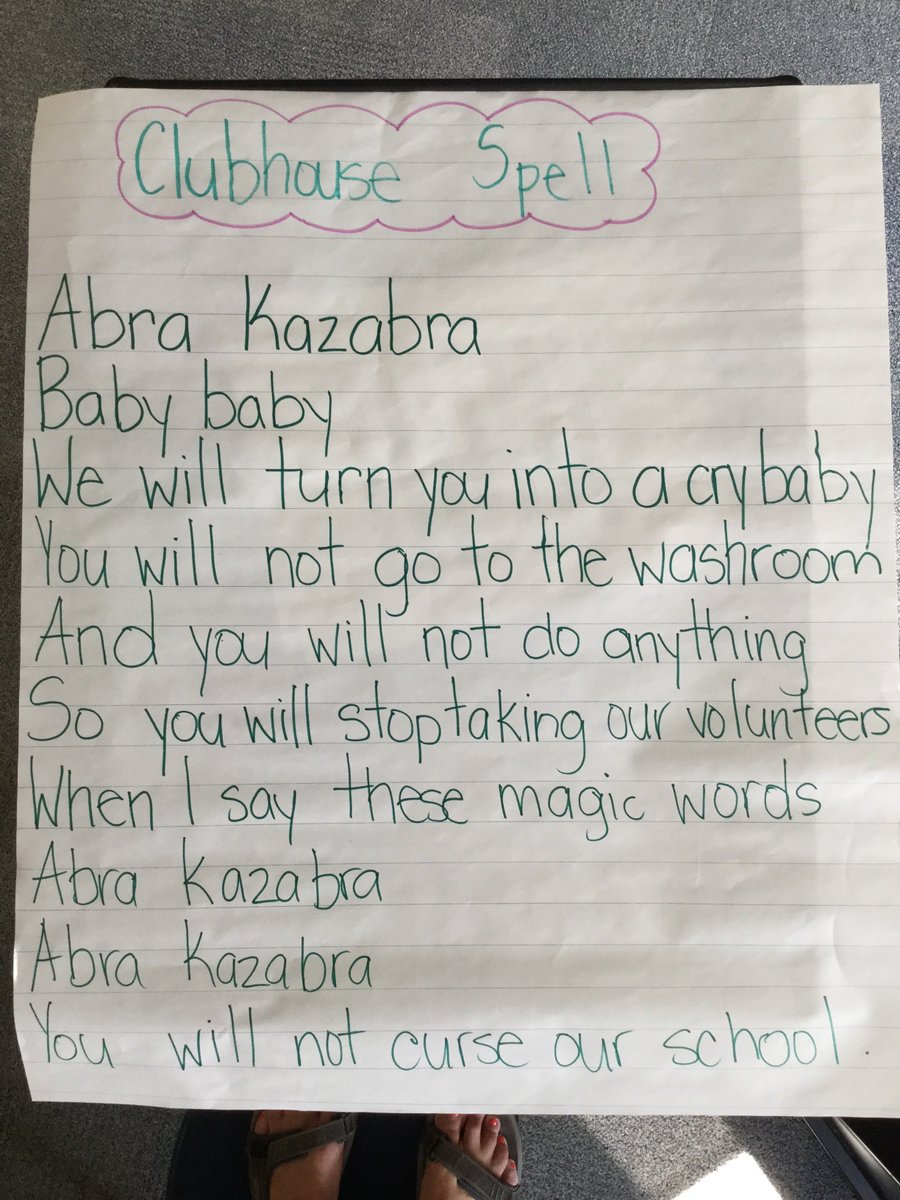 Clubhouse Spell
Abra Kazabra
Baby baby
We will turn you into a crybaby
You will not go to the washroom
And you will not do anything
So you will stop taking our volunteers
When I say these magic words
Abra Kazabra
Abra Kazabra
You will not curse our school.